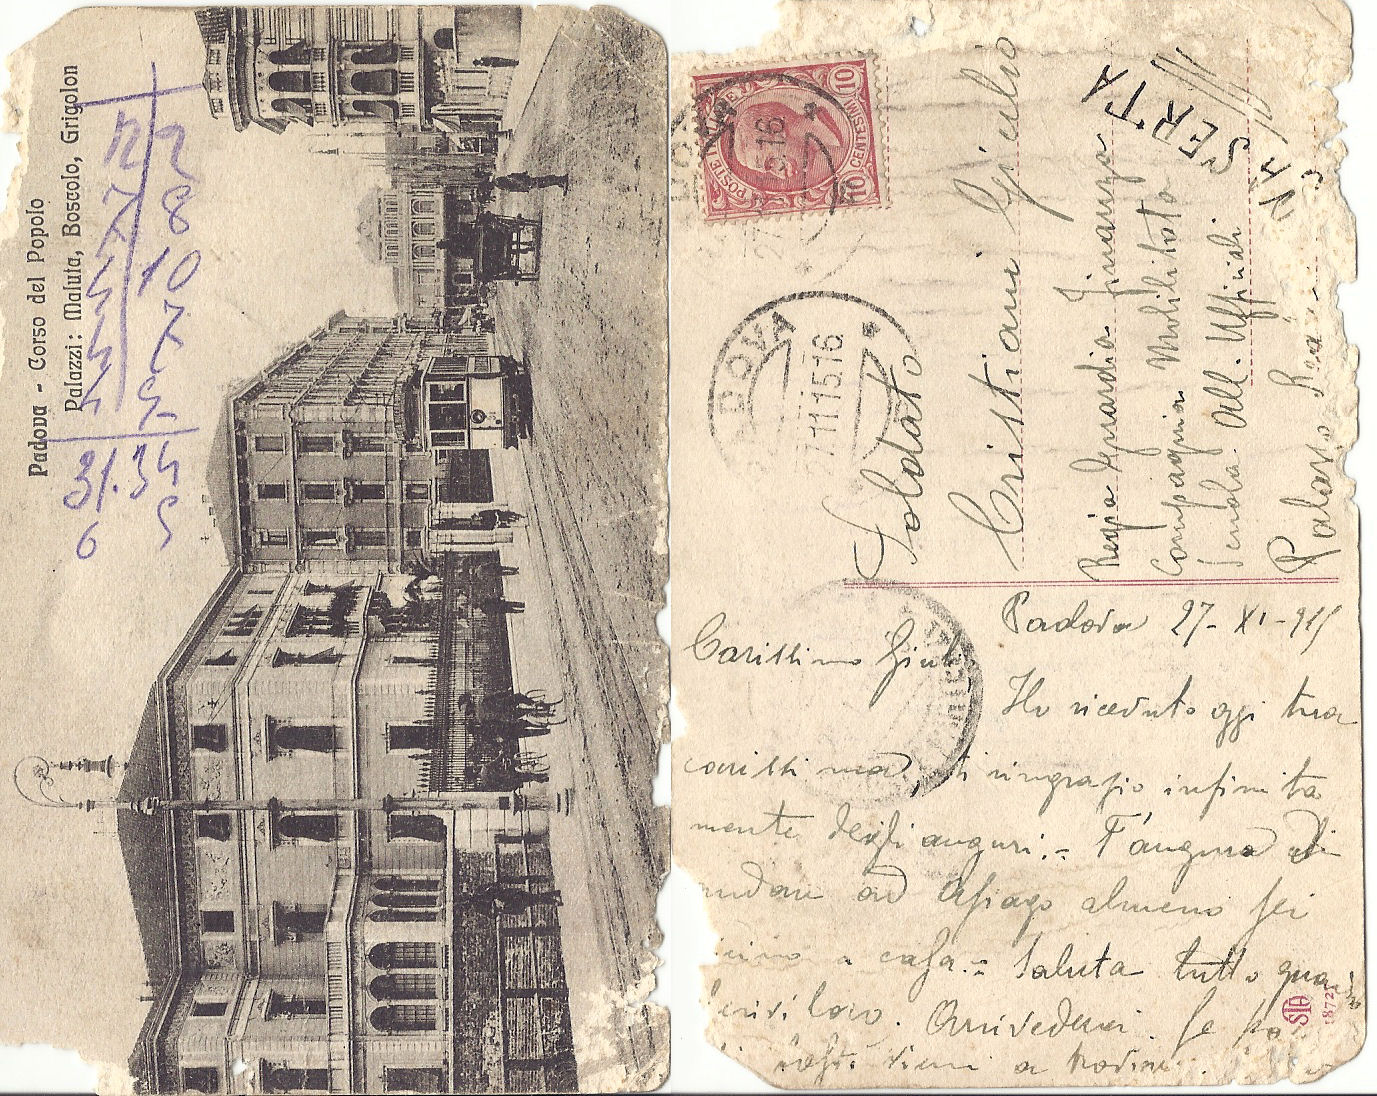 Padova - Corso del Popolo
Palazzi: Maluta, Boscolo, Grigolon
12 2
7 8
7 10
4 7
4 5
4
31.34
6 5
POSTE ITALIANE
CENTESIMI 10
10
DOVA
27.11 15.16
Soldato
Cristiani Giulio
Regia Guardia Finanza
Compagnia Mobilitata
Scuola All. Uffiziali
Palazzo Rea
CASERTA
Padova 27-XI-915
Carissimo Giulio
Ho ricevuto oggi tua
carissima. ti ringrazio infinita
mente degli auguri.= T'auguro di
andare ad Asiago almeno sei
vicino a casa.= Saluta tutto quando
scrivi loro. Arrivederci. Se
vieni a
STA
1872